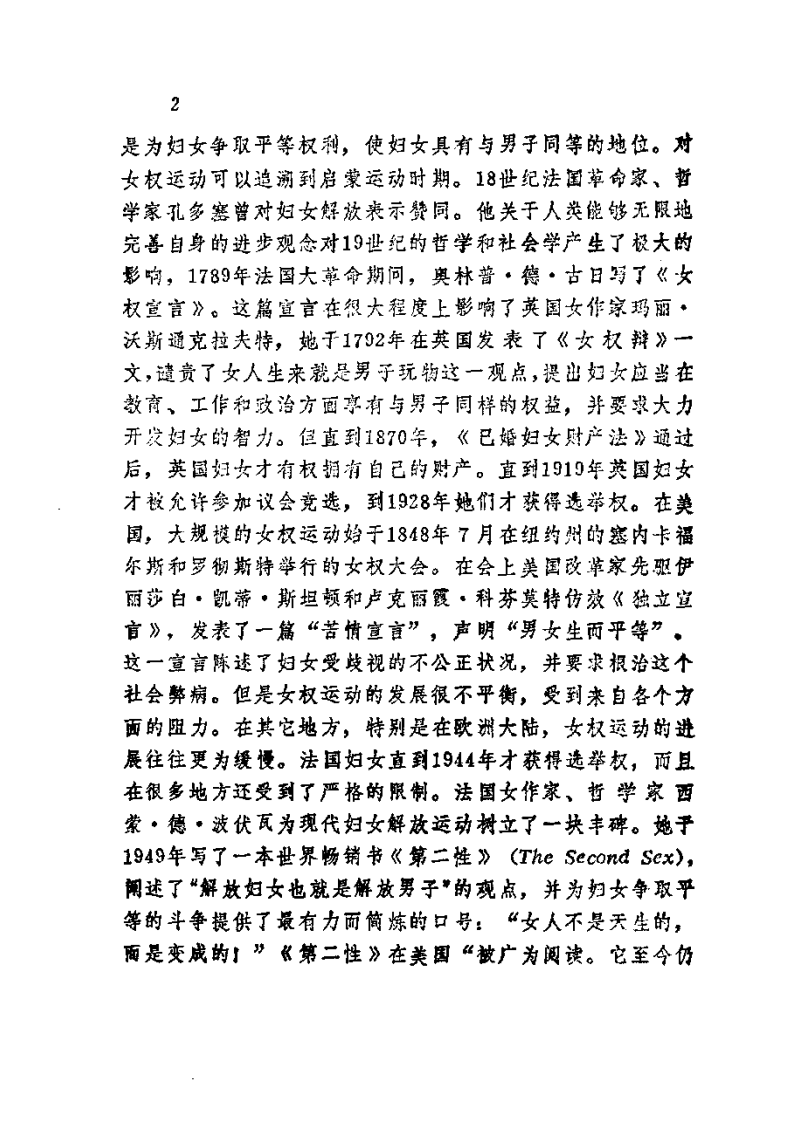 2
是为妇女争取平等权利，使妇女具有与男子同等的地位。对
女权运动可以追溯到启蒙运动时期。18世纪法国革命家、哲
学家孔多塞曾对妇女解放表示赞同。他关于人类能够无限地
完善自身的进步观念对19世纪的哲学和社会学产生了极大的
影响，1789年法国大革命期间，奥林普·德·古日写了《女
权宣言》。这篇宣言在很大程度上影响了英国女作家玛丽·
沃斯通克拉夫特，她于1792年在英国发表了《女权辩》一
文，谴责了女人生来就是男子玩物这一观点，提出妇女应当在
教育、工作和政治方面享有与男子同样的权益，并要求大力
开发妇女的智力。但直到1870年，《已婚妇女财产法》通过
后，英国妇女才有权拥有自己的财产。直到1919年英国妇女
才被允许参加议会竞选，到1928年她们才获得选举权。在美
国，大规模的女权运动始于1848年7月在纽约州的塞内卡福
尔斯和罗彻斯特举行的女权大会。在会上美国改革家先驱伊
丽莎白·凯蒂·斯坦顿和卢克丽霞·科芬莫特仿效《独立宣
言》，发表了一篇“苦情宣言”，声明“男女生而平等”。
这一宣言陈述了妇女受歧视的不公正状况，并要求根治这个
社会弊病。但是女权运动的发展很不平衡，受到来自各个方
面的阻力。在其它地方，特别是在欧洲大陆，女权运动的进
展往往更为缓慢。法国妇女直到1944年才获得选举权，而且
在很多地方还受到了严格的限制。法国女作家、哲学家西
蒙·德·波伏瓦为现代妇女解放运动树立了一块丰碑。她于
1949年写了一本世界畅销书《第二性》（The Second Sex），
阐述了“解放妇女也就是解放男子”的观点，并为妇女争取平
等的斗争提供了最有力而简炼的口号：“女人不是天生的，
而是变成的！”《第二性》在美国“被广为阅读。它至今仍